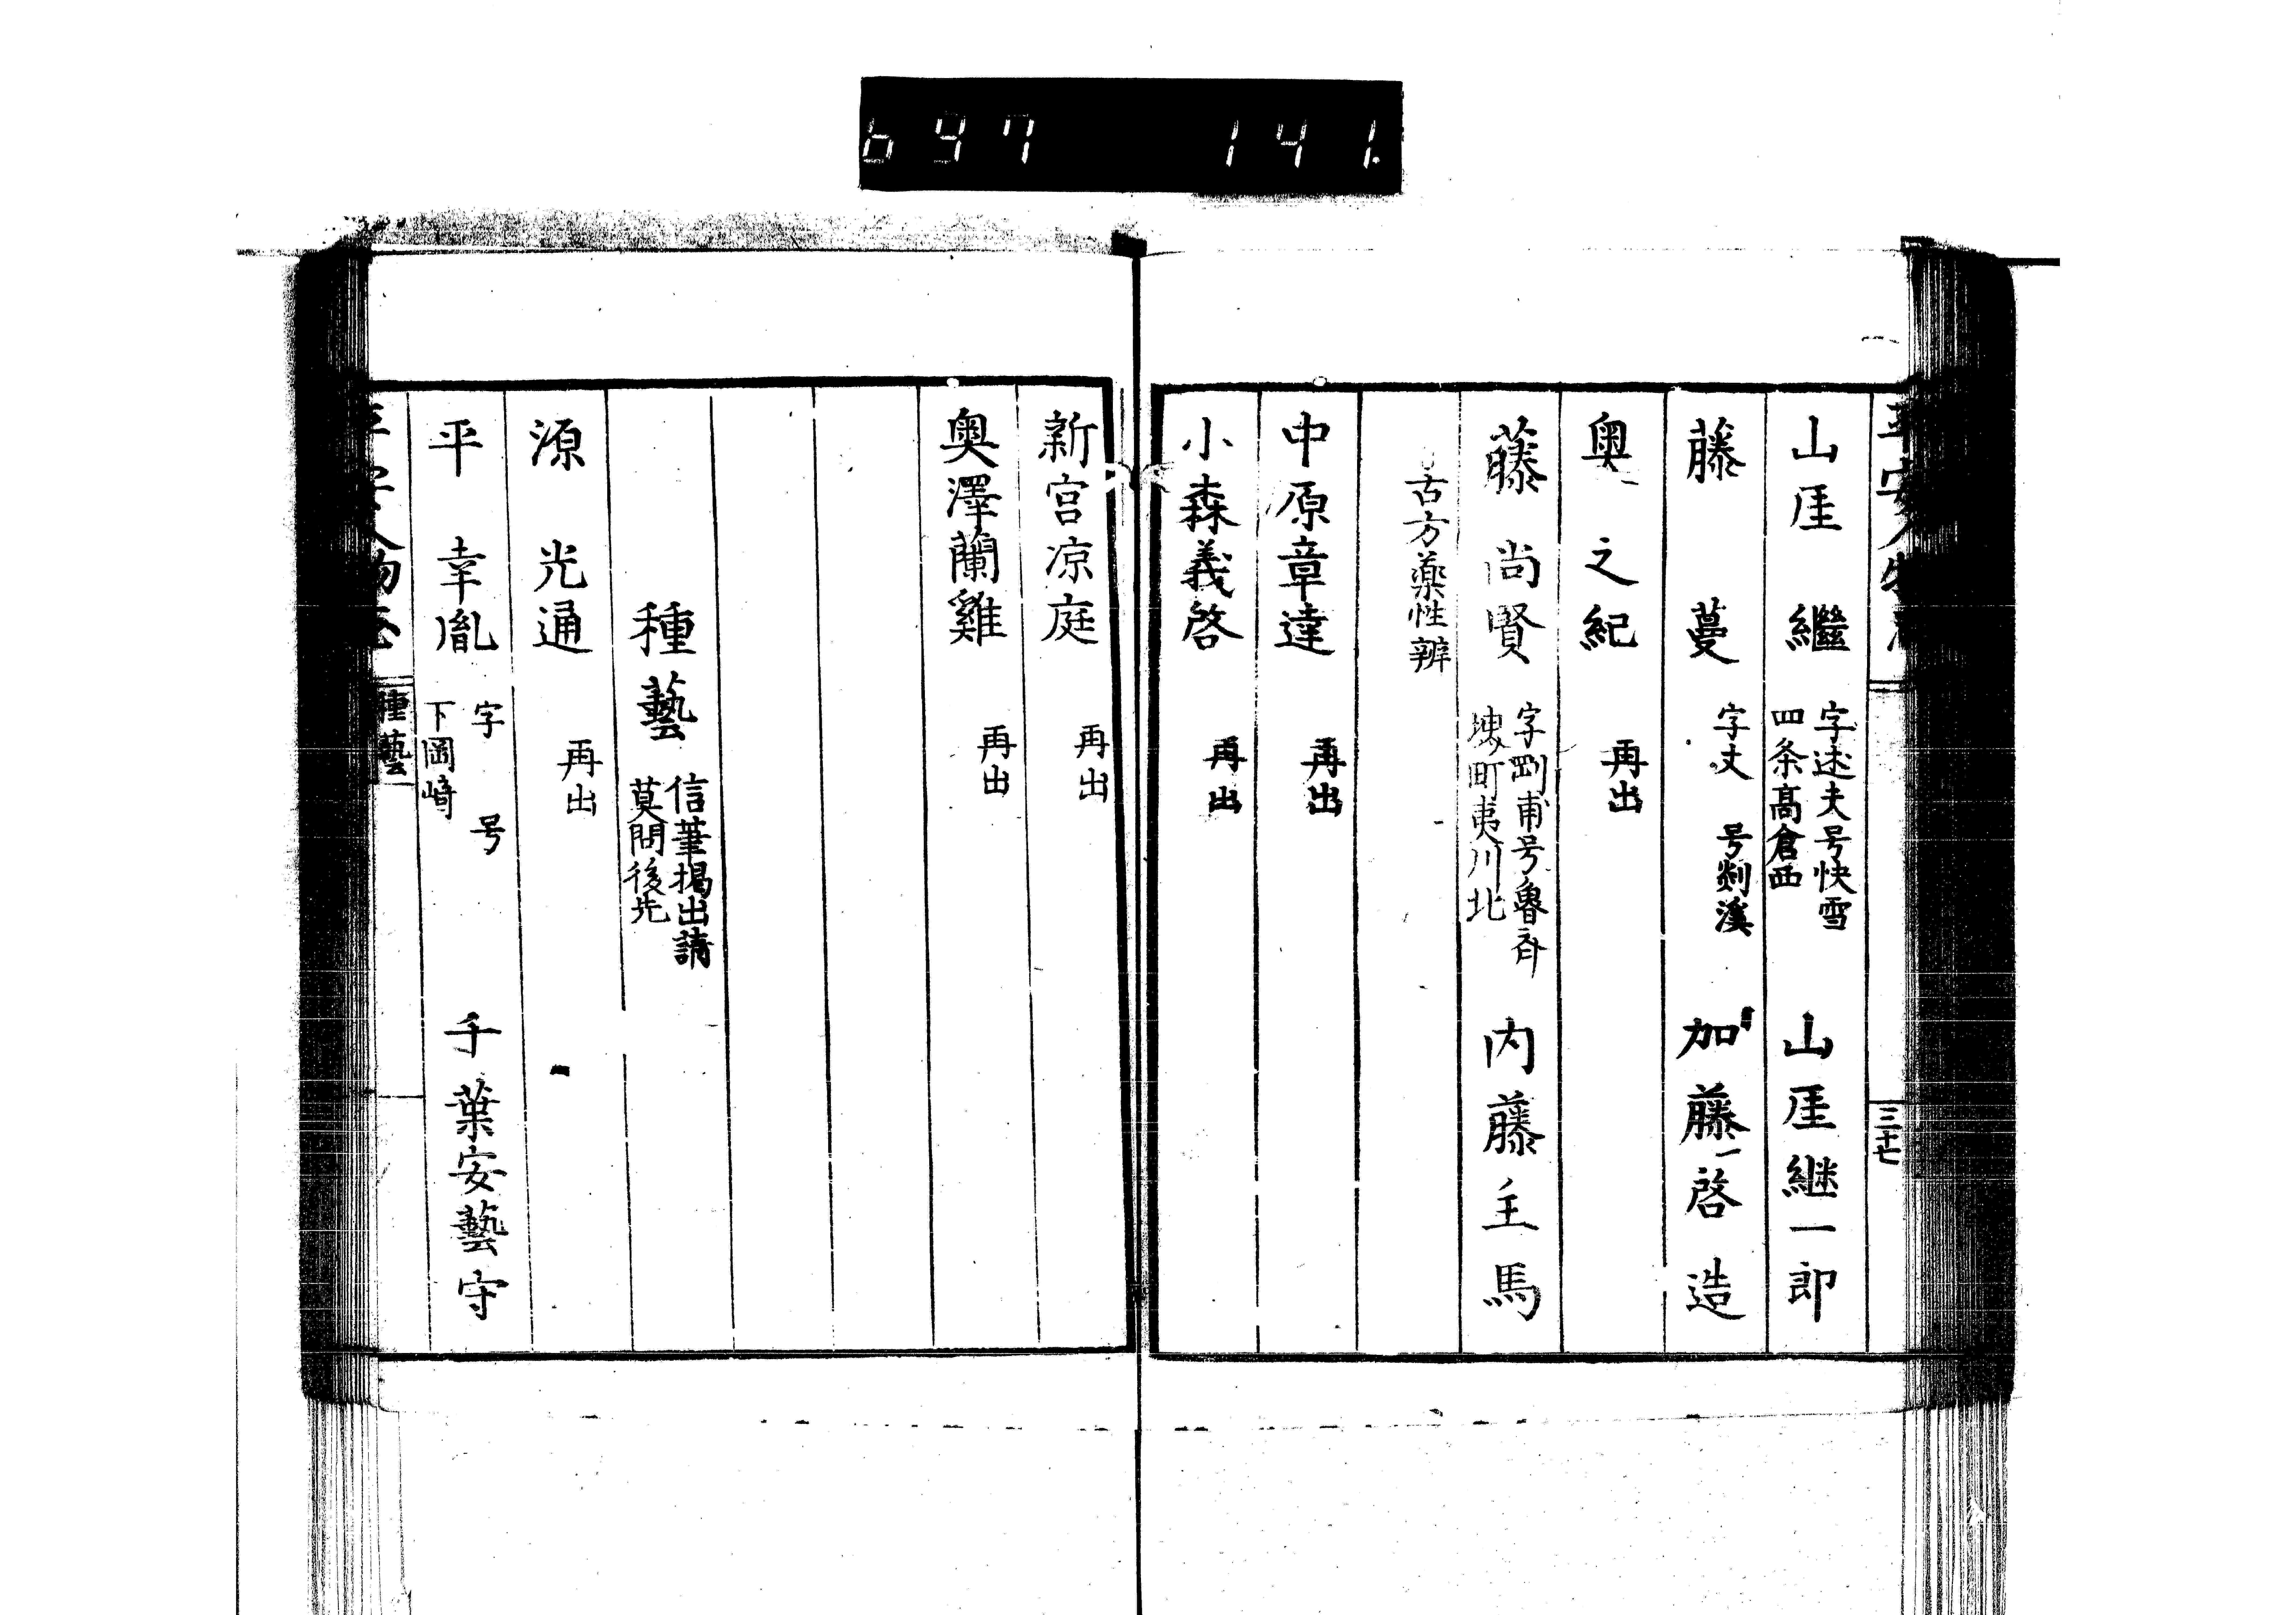 697 141.
平安人物志
三十七
山厓 繼 字述夫号快雪 四条高倉西 山厓継一郎
藤 蔓 字丈 号剡溪 加藤啓造
奥之紀 再出
藤尚賢 字剛甫号魯斎 堺町夷川北 内藤主馬
古方藥性辨
中原章達 再出
小森義啓 再出
新宮凉庭 再出
奥澤蘭雞 再出
種藝 信筆掲出請 莫問後先
源 光通 再出
平 幸胤 字 号 下岡崎 千葉安藝守
平安人物志 種藝